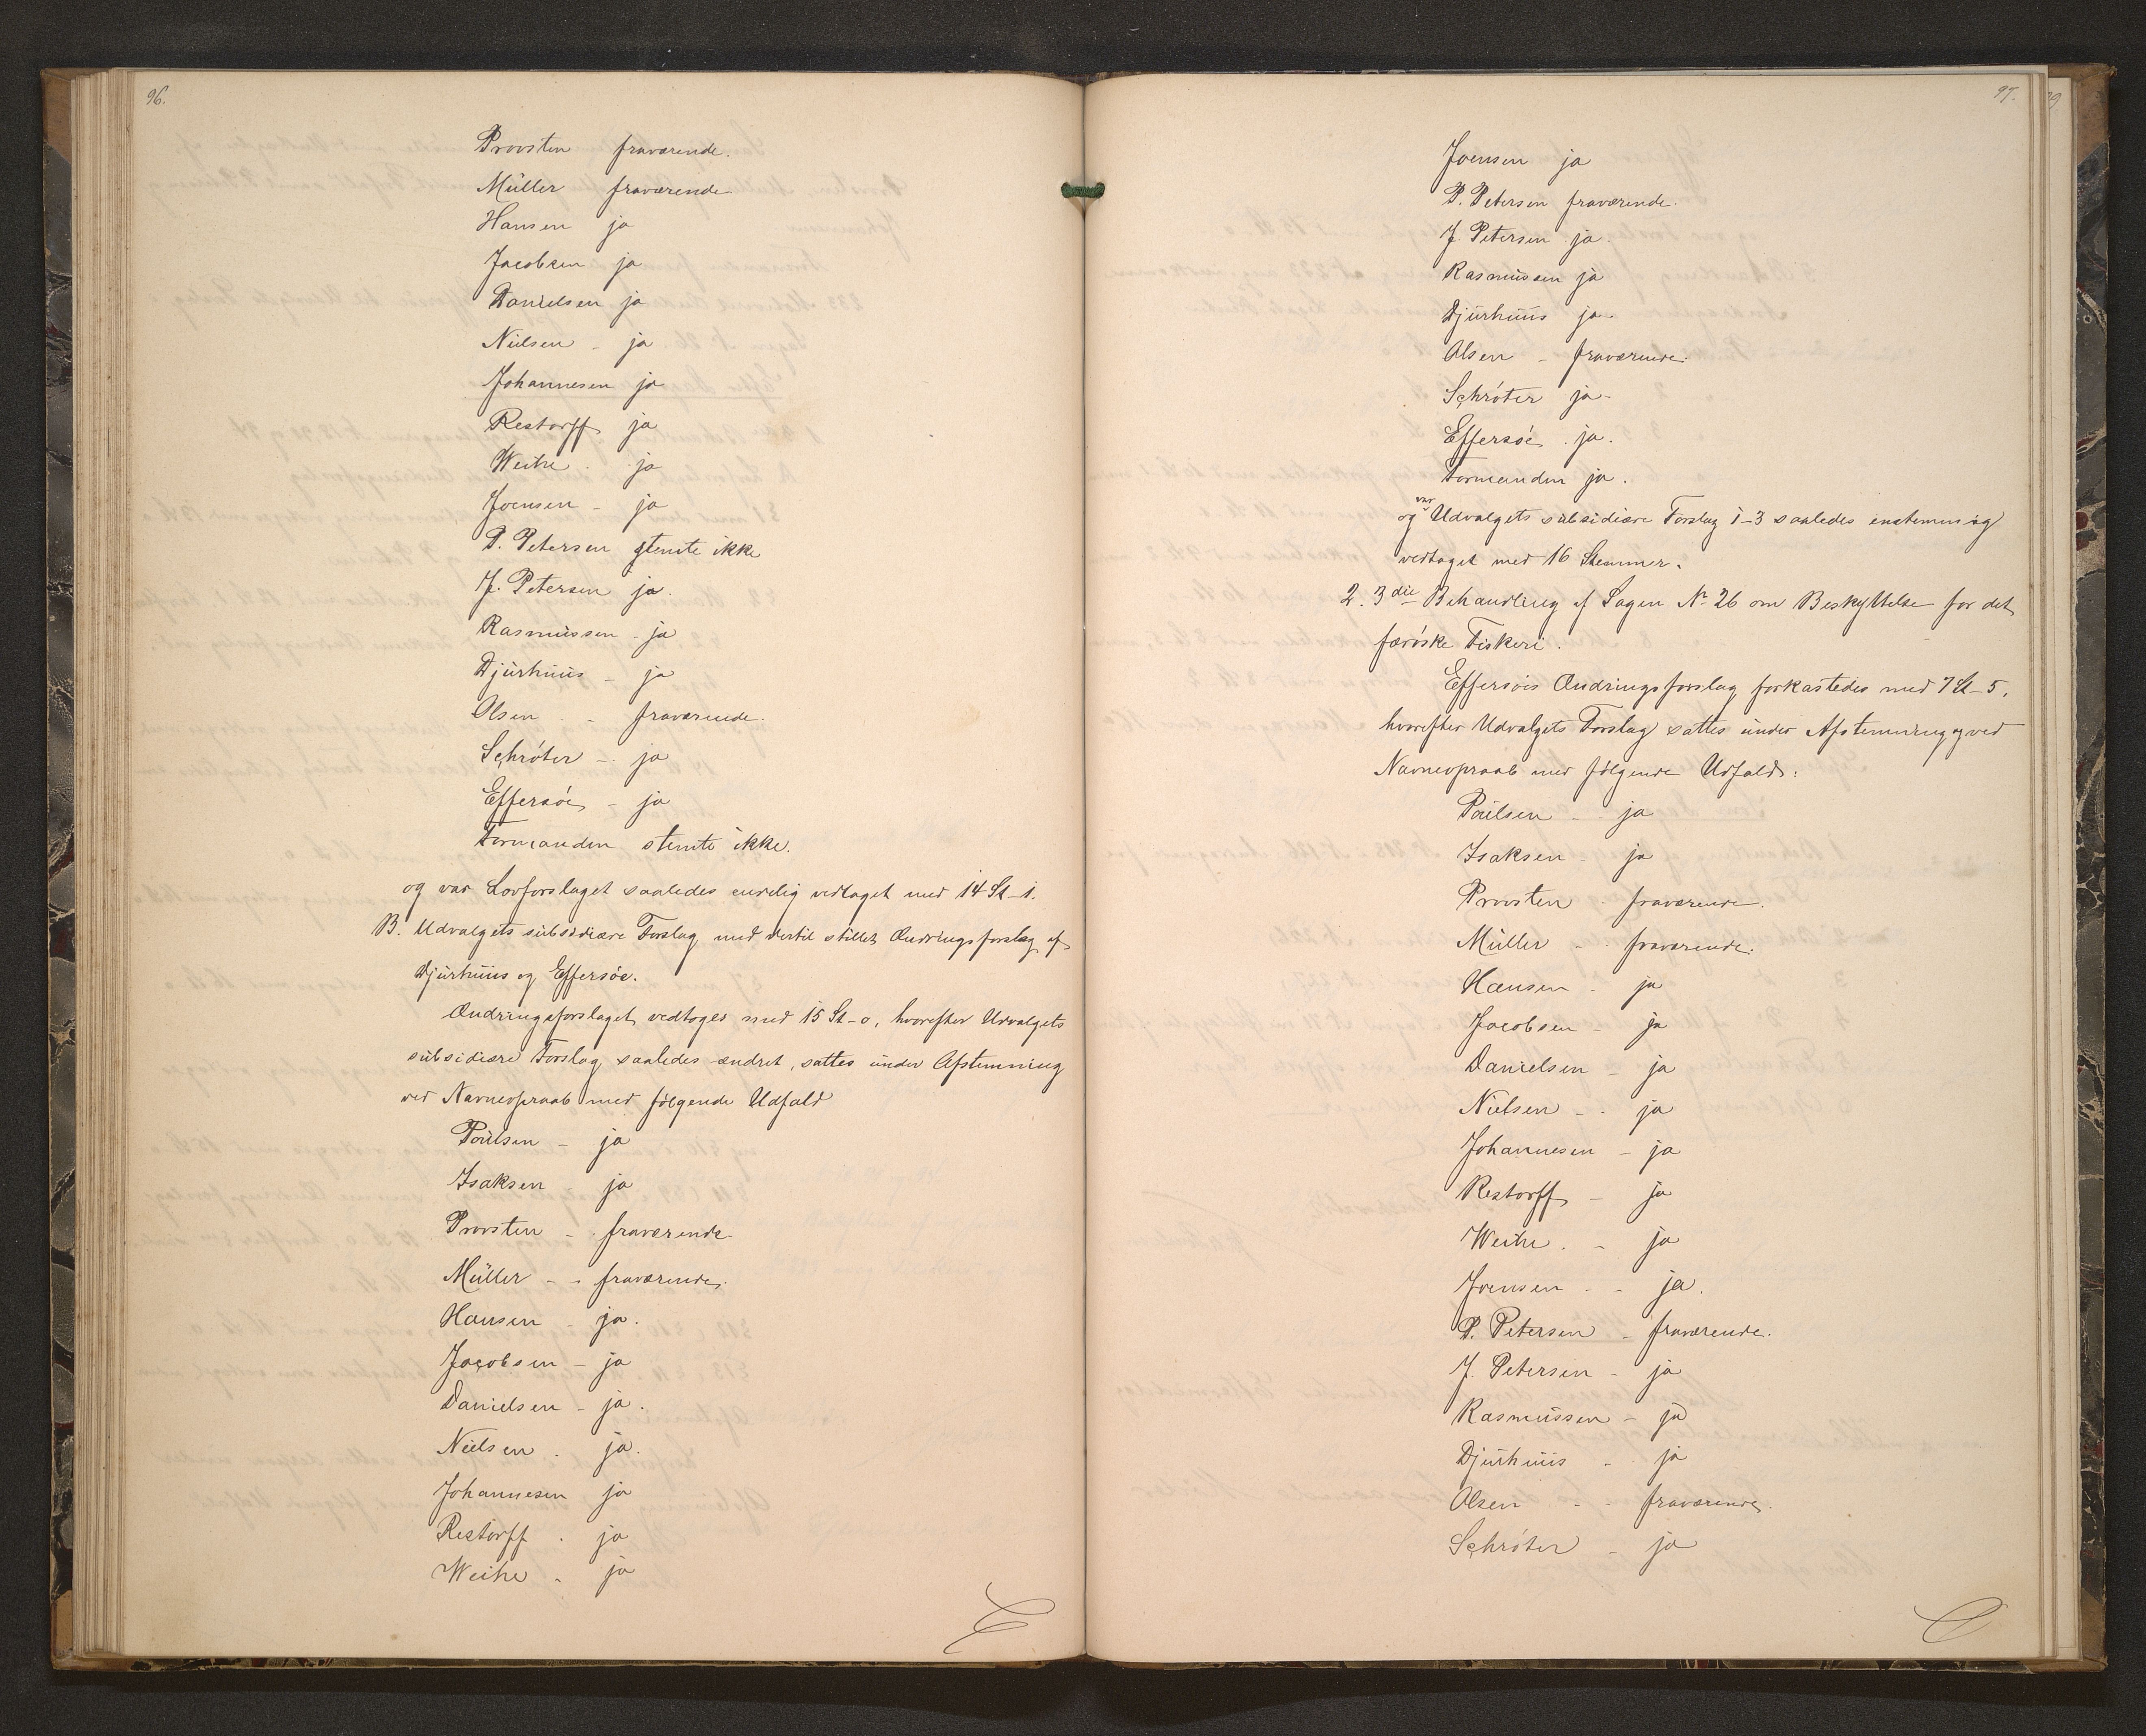 96.
Provsten fraværende.
Müller fraværende
Hansen ja
Jacobsen ja
Danielsen ja
Nielsen - ja
Johannesen ja
Restorff ja
Weihe . ja
Joensen - ja
P. Petersen stemte ikke
J. Petersen ja.
Rasmussen - ja
Djurhuus - ja
Olsen - fraværende.
Schróter - ja
Effersóe - ja
Formanden stemte ikke.
og var Lovforslaget saaledes endelig vedtaget med 14 St - 1.
B. Udvalgets subsidiære Forslag med dertil stillet Ændringsforslag af
Djurhuus og Effersóe.
Ændringsforslaget vedtoges med 15 St - o, hvorefter Udvalgets
subsidiære Forslag, saaledes ændret, sattes under Afstemning
ved Navneopraab med fólgende Udfald
Poulsen - ja
Isaksen - ja
Provsten - fraværende
Müller - - fraværende.
Hansen - ja.
Jacobsen - ja
Danielsen - ja.
Nielsen . ja.
Johannesen ja
Restorff . ja
Weihe - ja
97.
Joensen ja
P. Petersen fraværende.
J. Petersen ja.
Rasmussen ja
Djurhuus ja.
Olsen - fraværende.
Schróter ja -
Effersóe . ja.
Formanden ja.
og var Udvalgets subsidiære Forslag 1-3 saaledes enstemmig
vedtaget med 16 Stemmer.
2. 3die Behandling af Sagen No 26 om Beskyttelse for det
færóske Fiskeri.
Effersóes Ændringsforslag forkastedes med 7 St - 5,
hvorefter Udvalgets Forslag sattes under Afstemning ved
Navneopraab med fólgende Udfald:
Poulsen - ja
Isaksen - ja
Provsten - fraværende.
Müller - fraværende.
Hansen . ja
Jacobsen - ja
Danielsen - ja
Nielsen - . ja
Johannesen - ja
Restorff - ja
Weihe . - ja
Joensen - - ja.
P. Petersen - fraværende.
J. Petersen - ja
Rasmussen - ja
Djurhuus - ja
Olsen - - fraværende.
Schróter - ja